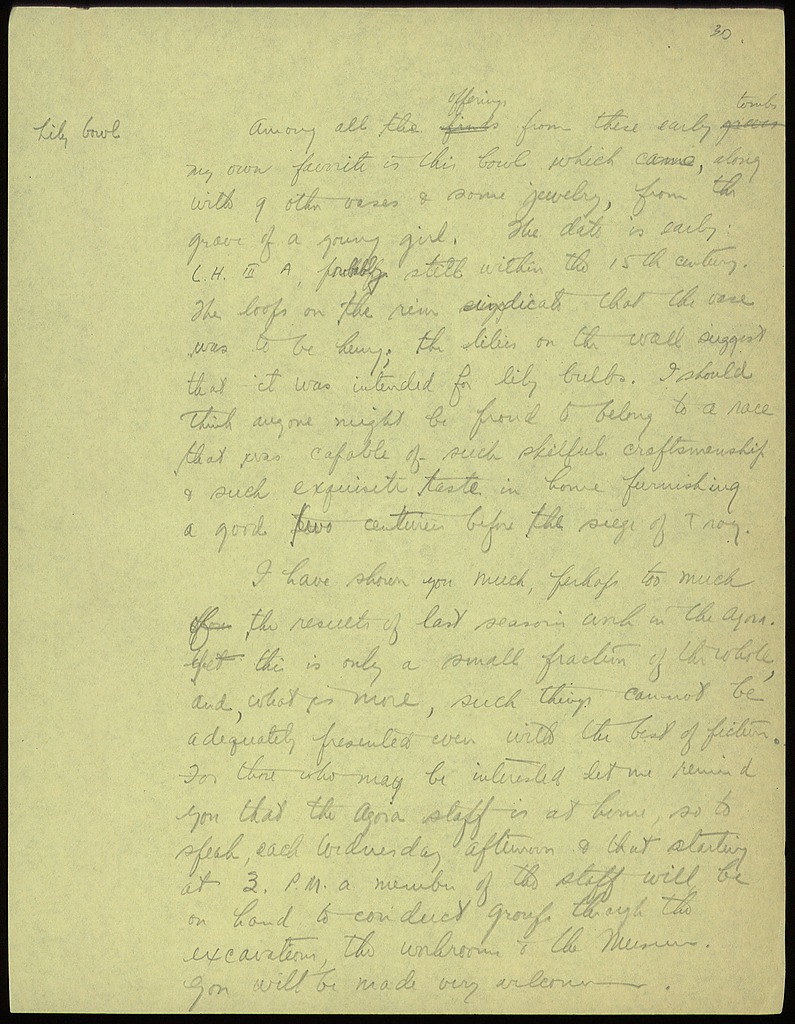 30.
Lily bowl
offerings tombs
Among all the finds from these early graves
my own favorite is this bowl which came, along
with 9 othr vases & some jewelry, from the
grave of a young girl. The date is early:
L.H. III A, probably still within the 15th century.
The loops on the rim indicate that the vase
was to be hung; the lilies on the wall suggest
that it was intended for lily bulbs. I should
think anyone might be proud to belong to a race
that was capable of such skilful craftsmanship
& such exquisite taste in home furnishing
a good two centuries before the siege of Troy.
I have shown you much, perhaps too much
of the results of last season's work in the Agora.
Yet this is only a small fraction of the whole,
and, what is more, such things cannot be
adequately presented even with the best of fiction.
For those who may be interested let me remind
you that the Agora staff is at home, so to
speak, each Wednesday afternoon & that starting
at 3. P.M. a member of the staff will be
on hand to conduct groups through the
excavations, the workrooms & the Museum.
You will be made very welcome.